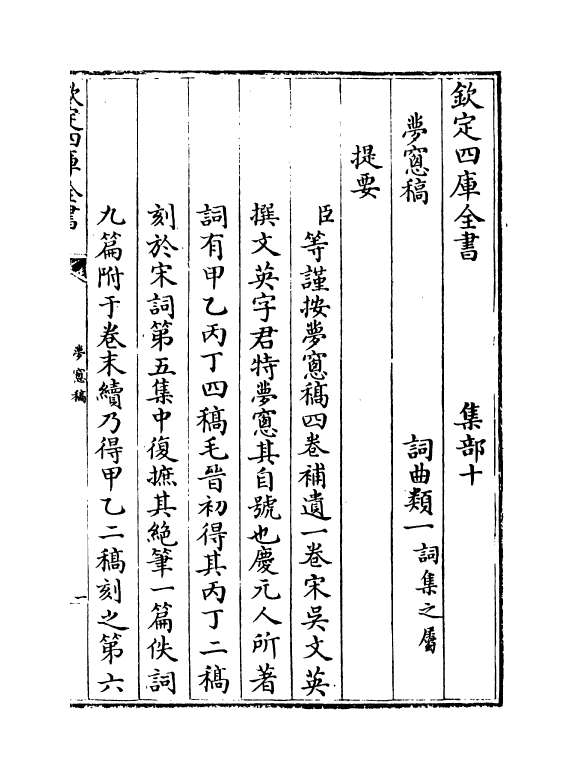 欽定四庫全書　集部十
夢窻稿　詞曲類一　詞集之屬
提要
臣等謹按夢窻稿四卷補遺一卷宋吳文英
撰文英字君特夢窻其自號也慶元人所著
詞有甲乙丙丁四稿毛晉初得其丙丁二稿
刻於宋詞第五集中復摭其絶筆一篇佚詞
九篇附于卷末續乃得甲乙二稿刻之第六
欽定四庫全書
夢窻稿
一